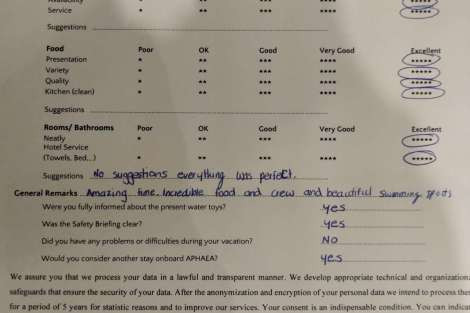 Availability * ** *** **** *****
Service * ** *** **** *****
Suggestions
Food Poor OK Good Very Good Excellent
Presentation * ** *** **** *****
Variety * ** *** **** *****
Quality * ** *** **** *****
Kitchen (clean) * ** *** **** *****
Suggestions
Rooms/ Bathrooms Poor OK Good Very Good Excellent
Neatly * ** *** **** *****
Hotel Service
(Towels, Bed...) * ** *** **** *****
Suggestions No suggestions everything was perfect.
General Remarks Amazing time. Incredible food and crew and beautiful swimming spots
Were you fully informed about the present water toys? yes
Was the Safety Briefing clear? yes
Did you have any problems or difficulties during your vacation? NO
Would you consider another stay onboard APHAEA? yes
We assure you that we process your data in a lawful and transparent manner. We develop appropriate technical and organization
safeguards that ensure the security of your data. After the anonymization and encryption of your personal data we intend to process the
for a period of 5 years for statistic reasons and to improve our services. Your consent is an indispensable condition. You can indica